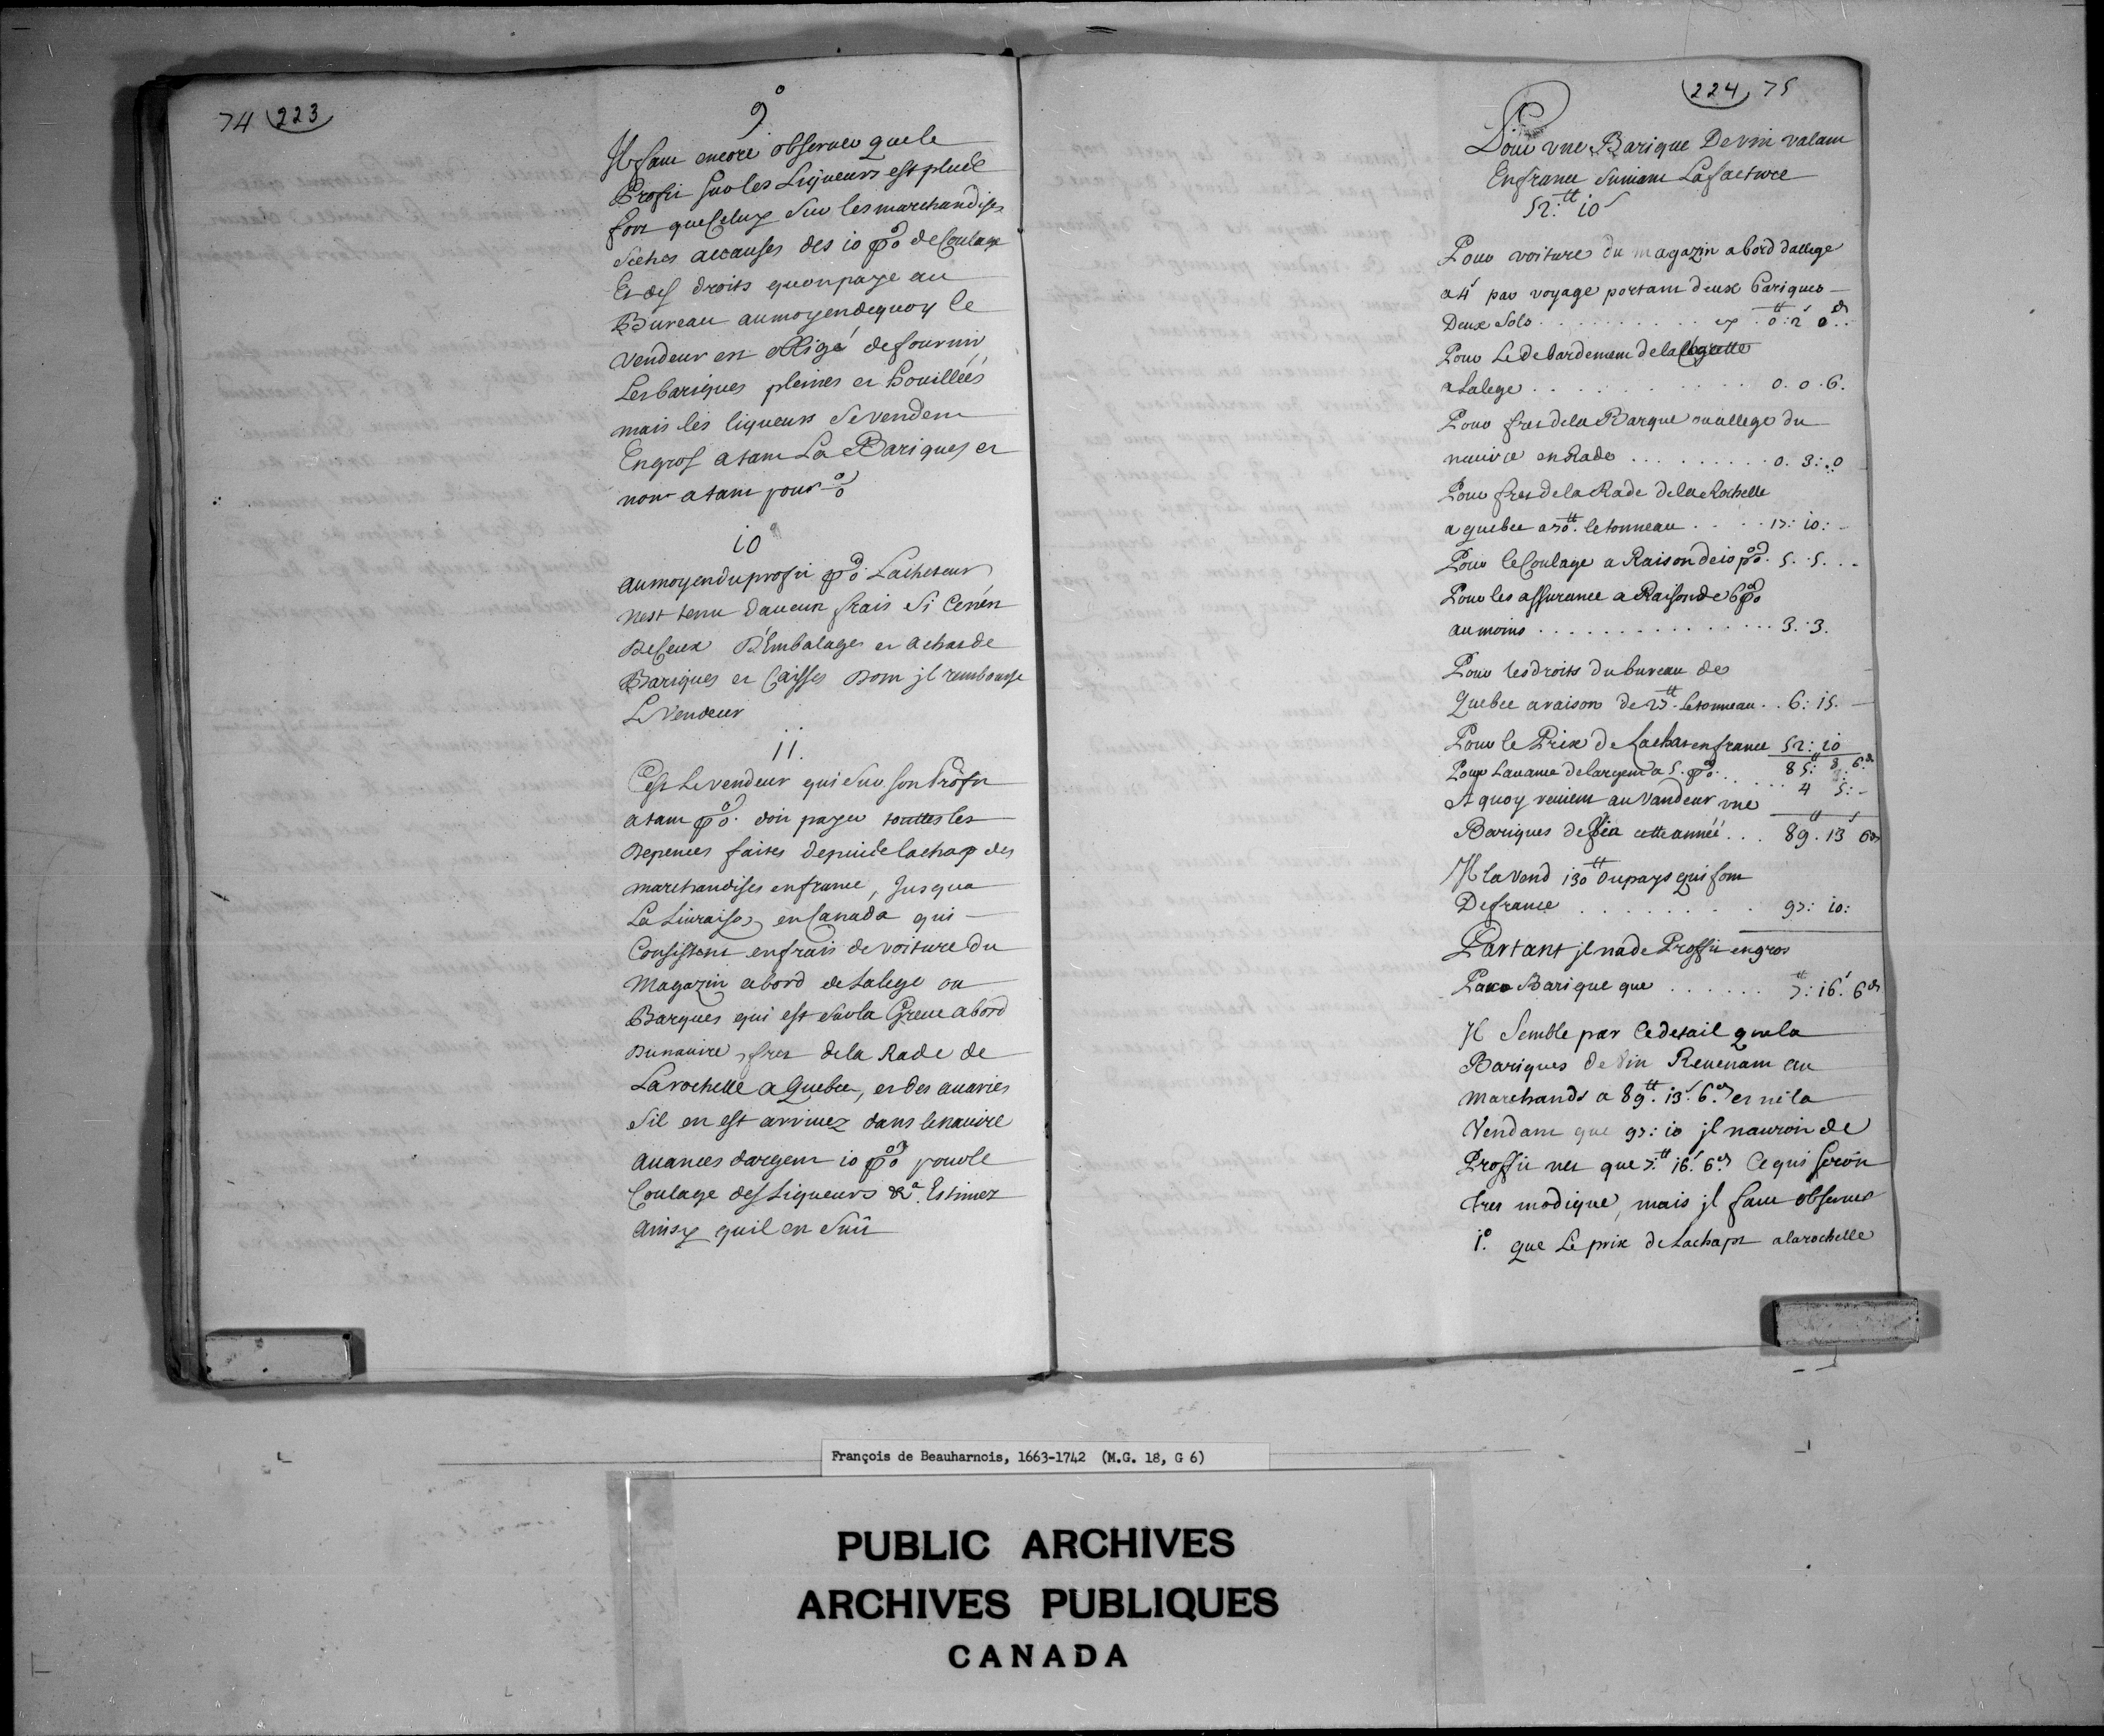 74 223
9°
Il faut encore observer que le
Profit sur les Liqueurs est plus
fort que Celuy sur les marchandises
seiches accauses des 10 p% de Coulage
Et des droits quon paye au
Bureau au moyen de quoy le
vendeur est obligé de fournir
Les bariques pleines et houillées
mais les liqueurs se vendent
En gros a tant La Bariques et
non a tant pour %
10
au moyen du profit p% Lacheteur
nest tenu daucun frais si Cen'en
De Ceux D'Embalages et achat de
Bariques et Caisses Dont jl rembourse
Le Vendeur
11.
C'est Le vendeur qui sur son Profit
a tant p% doit payer touttes les
Depences faites depuis de lachap des
marchandises en france, Jusqua
La Livraison en Canada qui
Consistent en frais de voiture du
Magazin abord de Lalege ou
Barques qui est sur la Greve abord
Du navire, fret de la Rade de
La rochelle a Quebec, et des avaries
Sil en est arrivez dans le navire
avances dargent 10 p% pour le
Coulage des Liqueurs &a. Estimez
ainsy quil en suit
224 75
Pour une Barique De vin valant
En france suivant La facture
52:tt 10s
Pour voiture du magazin abord dallege
a 4s par voyage portant deux bariques
Deux Sols . . . . . . . . cy . 0tt: 2s 0d..
Pour Le debardement de la
a Lalege . . . . . . . . . . 0. 0. 6.
Pour fret de la Barque ou allege du
navire en Rade . . . . . . . . . 0. 3: .0
Pour fret de la Rade de la Rochelle
a quebec a 70tt. le tonneau . . . . 17: 10: -
Pour le Coulage a Raison de 10 p%. 5. 5. . -
Pour les assurance a Raison de 6 p%
au moins . . . . . . . . . . . . . . . 3. 3.
Pour les droits du bureau de
Quebec a raison de 27tt. Le tonneau . . 6: 15. -
Pour le Prix de Lachat en france 52: 10
Pour Lavance de largent a 5. p%. . . 85:tt 8: 6d
A quoy revient au vandeur une . . . 4 5: -
Bariques de vin cette année . . . 89.tt 13s 6ds
Il la vend 130tt du pays qui font
De france . . . . . . . . . 97: 10:
Partant jl na de Proffit en gros
Par Barique que . . . . . . 7:tt 16s. 6ds
Il Semble par Ce detail que la
Bariques de vin Revenant au
Marchands a 89tt. 13s. 6ds et ne la
Vendant que 97: 10 jl nauroit de
Proffit net que 7.tt 16s. 6ds Ce qui seroit
tres modique, mais jl faut observer
1° que Le prix de Lachapt a la rochelle
François de Beauharnois, 1663-1742 (M.G. 18, G 6)
PUBLIC ARCHIVES
ARCHIVES PUBLIQUES
CANADA